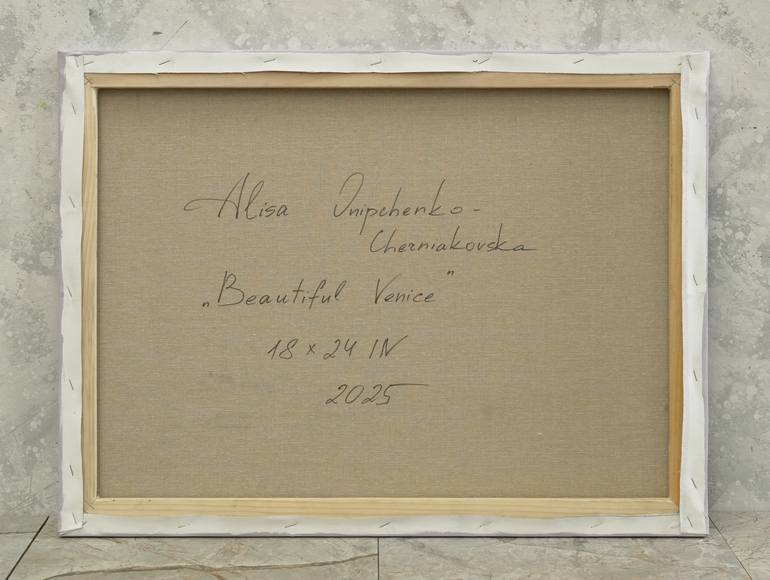 Alisa Onipchenko-
Cherniakovska
„Beautiful Venice"
18 x 24 IN
2025